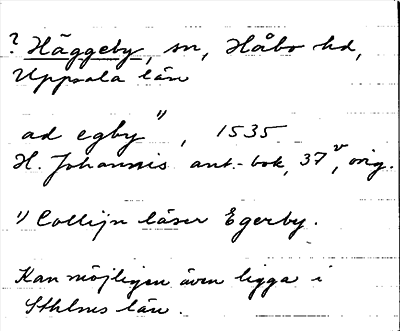 ? Häggeby, sn, Håbo hd,
Uppsala län
ad egby ", 1535
H. Johannis ant.-bok, 37 v, orig.
") Collijn läser Egerby.
Kan möjligen även ligga i
Sthlms län.